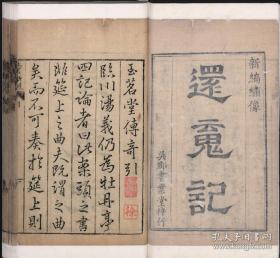 新編繡像
還䰟記
吳郡書業堂梓行
玉茗堂傳奇引
臨川湯義仍為牡丹亭
四記論者曰此案頭之書
非筵上之曲夫既謂之曲
矣而不可奏於筵上則